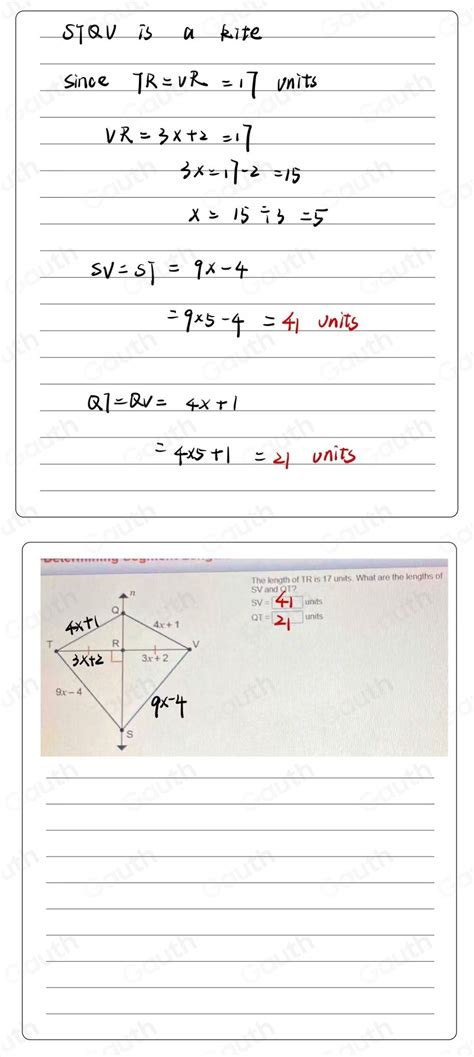 STQV is a kite
Since TR=VR =17 units
VR=3x+2 =17
3x=17-2 =15
x= 15÷3 =5
SV=ST = 9x-4
=9×5-4 = 41 units
QT=QV= 4x+1
= 4×5+1 = 21 units
The length of TR is 17 units. What are the lengths of
SV and QT?
SV = 41 units
QT = 21 units
n
Q
4x+1
4x+1
T
R
V
3x+2
3x+2
9x-4
9x-4
S